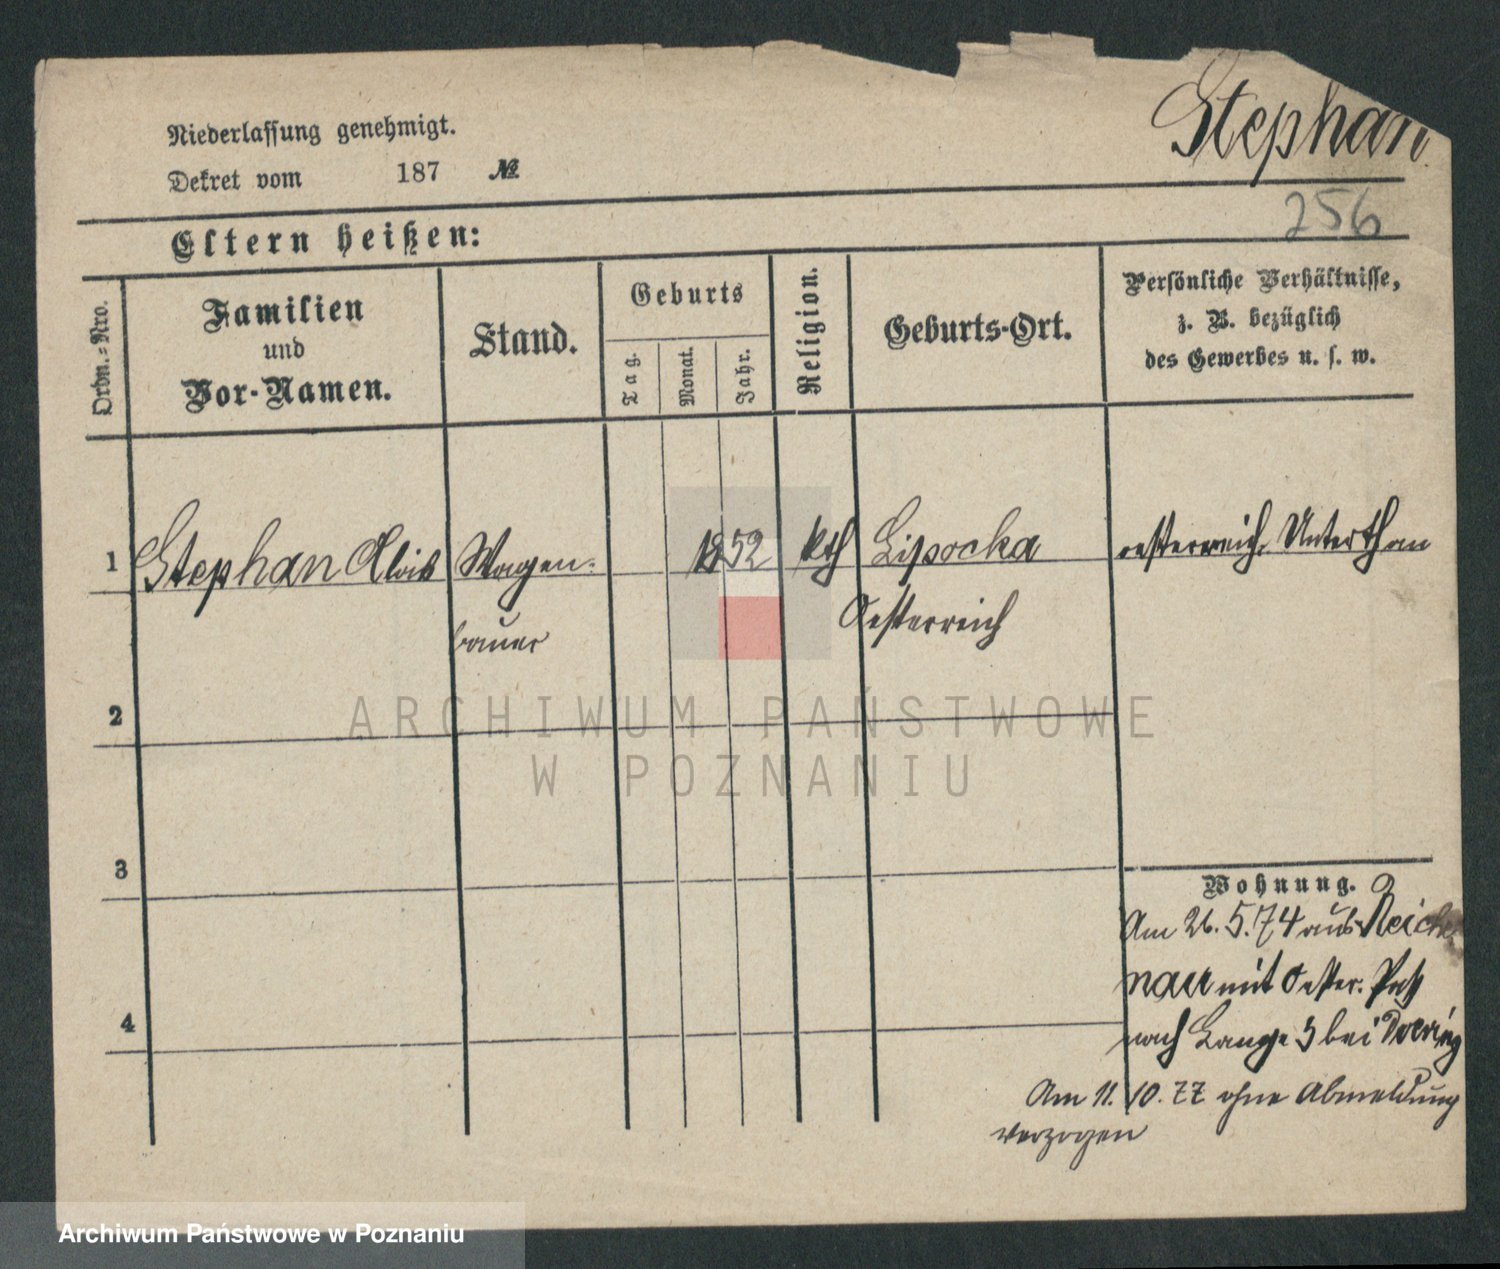 Stephan
Niederlassung genehmigt.
Dekret vom 187 №
256
Eltern heißen:
Ordn.-Nro.
Familien
und
Vor-Namen.
Stand.
Geburts
Tag.
Monat.
Jahr.
Religion.
Geburts-Ort.
Persönliche Verhältnisse,
z. B. bezüglich
des Gewerbes u. s. w.
1 Stephan Alois Wagen- 1852 kth Lipocka oesterreich. Unterthan
bauer Oesterreich
2
ARCHIWUM PAŃSTWOWE
W POZNANIU
3
Wohnung.
Am 26. 5. 74 aus Reiche
nau mit Oester. Paß
4
nach Lange 3 bei Doering
Am 11. 10. 77 ohne Abmeldung
verzogen
Archiwum Państwowe w Poznaniu